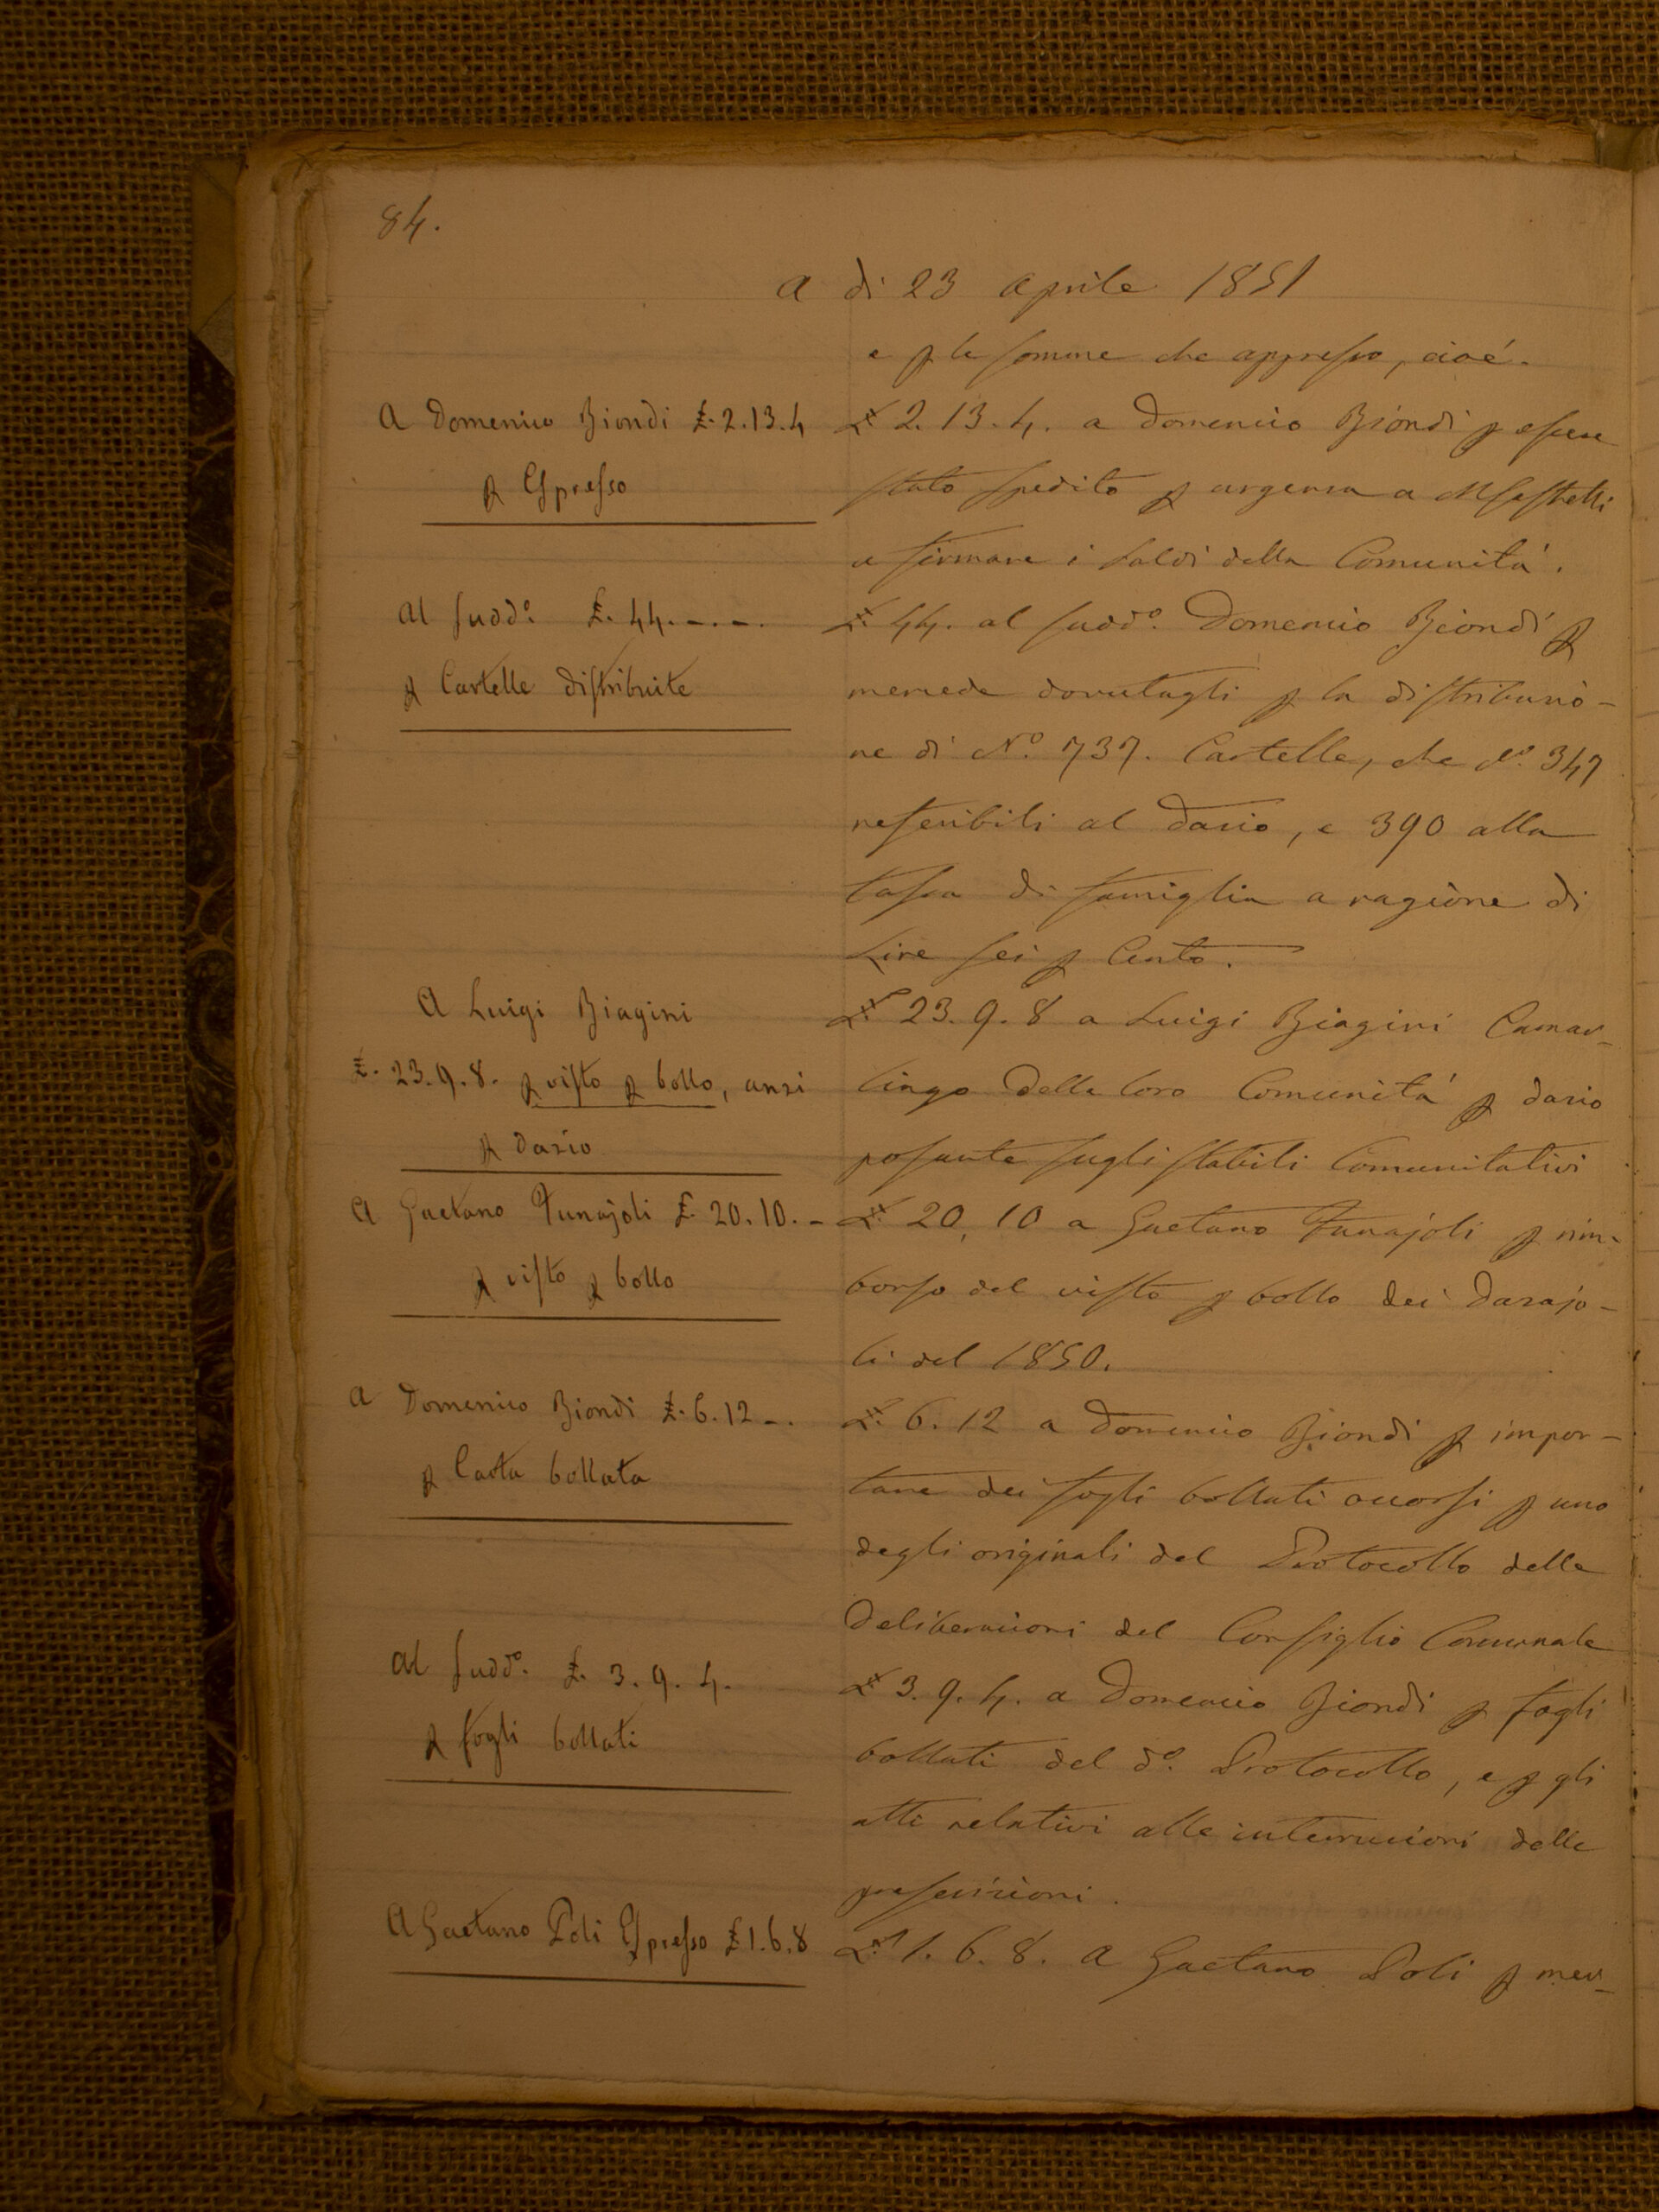 84.
A di 23 Aprile 1851
e p le somme che appresso, cioé.
A Domenico Biondi £. 2.13.4
p Espresso
£ 2.13.4. a Domenico Biondi p essere
stato spedito p urgenza a
a firmare i Saldi della Comunitá.
Al sudd.º £. 44.-.-.
p Cartelle distribuite
£. 44. al sudd.º Domenico Biondi p
mercede dovutagli p la distribuzio-
ne di N.º 737. Cartelle, che N.º 347
referibili al Dazio, e 390 alla
tassa di famiglia a ragione di
Lire sei p Cento.
A Luigi Biagini
£. 23.9.8. p visto p bollo, anzi
p Dazio
£ 23.9.8 a Luigi Biagini Camar-
lingo della loro Comunitá p dazio
posante sugli stabili Comunitativi
A Gaetano Funajoli £. 20.10.-
p visto p bollo
£. 20,10 a Gaetano Funajoli p rim-
borso del visto p bollo dei Dazajo-
li del 1850.
A Domenico Biondi £. 6.12-.
p Carta bollata
£. 6.12 a Domenico Biondi p impor-
tare dei fogli bollati occorsi p uno
degli originali del Protocollo delle
Deliberazioni del Consiglio Comunale
Al sudd.º £. 3.9.4.
p fogli bollati
£ 3.9.4. a Domenico Biondi p fogli
bollati del d.º Protocollo, e p gli
atti relativi alle interruzioni delle
prescrizioni.
A Gaetano Poli Espresso £ 1.6.8
£. 1.6.8. A Gaetano Poli p mer-